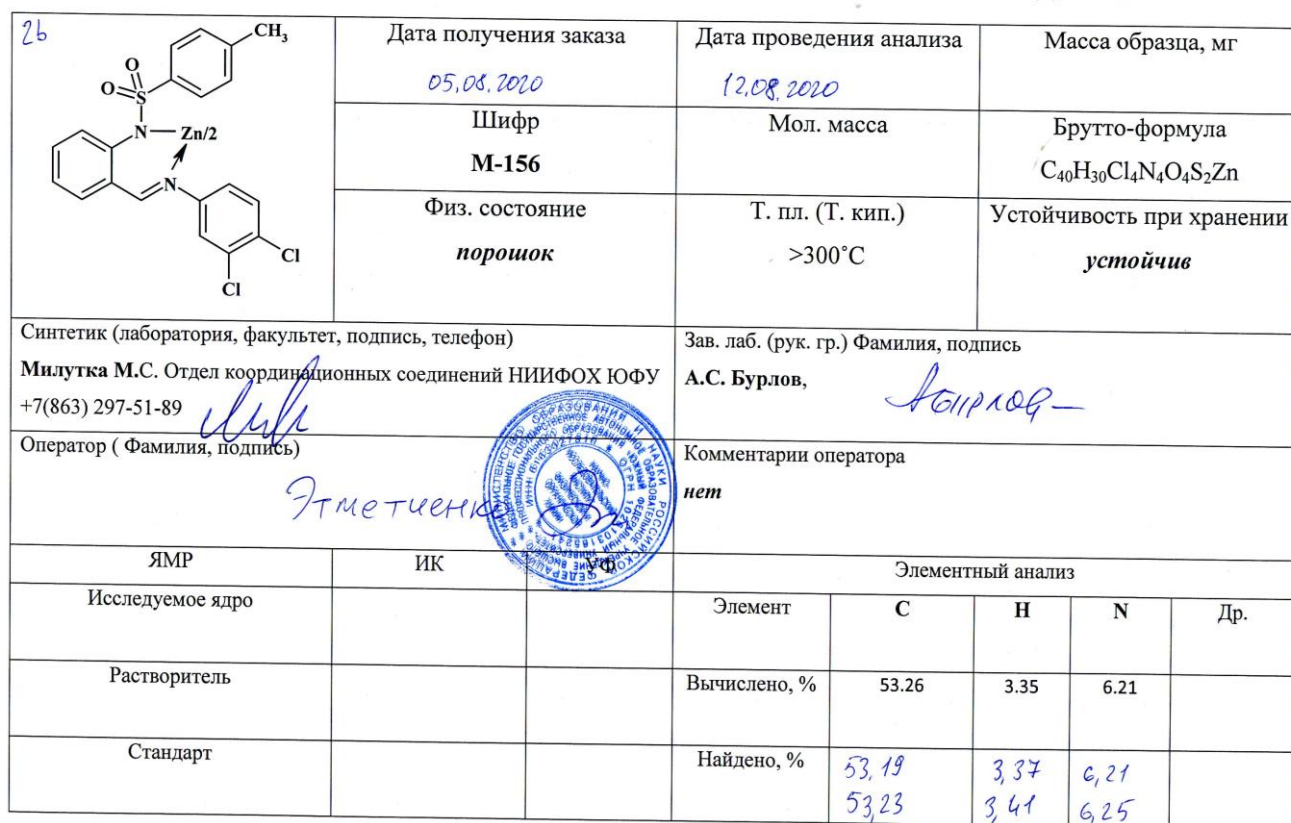 2b
CH3
O
O
S
N
Zn/2
N
Cl
Cl
Дата получения заказа
05.08.2020
Дата проведения анализа
12.08.2020
Масса образца, мг
Шифр
М-156
Мол. масса
Брутто-формула
C40H30Cl4N4O4S2Zn
Физ. состояние
порошок
Т. пл. (Т. кип.)
>300˚C
Устойчивость при хранении
устойчив
Синтетик (лаборатория, факультет, подпись, телефон)
Милутка М.С. Отдел координационных соединений НИИФОХ ЮФУ
+7(863) 297-51-89
Зав. лаб. (рук. гр.) Фамилия, подпись
А.С. Бурлов,
Оператор ( Фамилия, подпись)
Комментарии оператора
нет
ЯМР ИК УФ Элементный анализ
Исследуемое ядро Элемент C H N Др.
Растворитель Вычислено, % 53.26 3.35 6.21
Стандарт Найдено, % 53,19 3,37 6,21
53,23 3,41 6,25